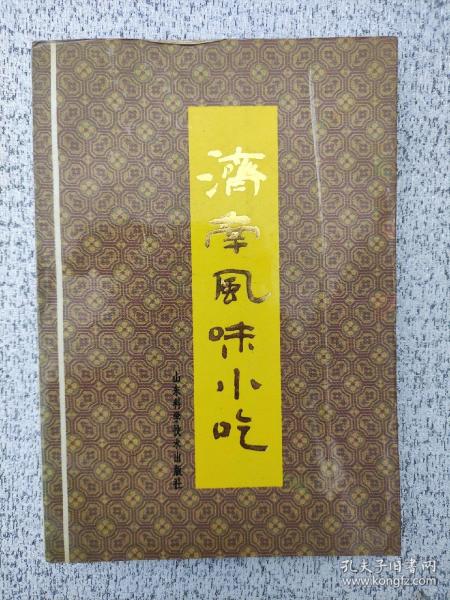 濟南風味小吃
山东科学技术出版社
孔夫子旧书网
www.kongfz.com